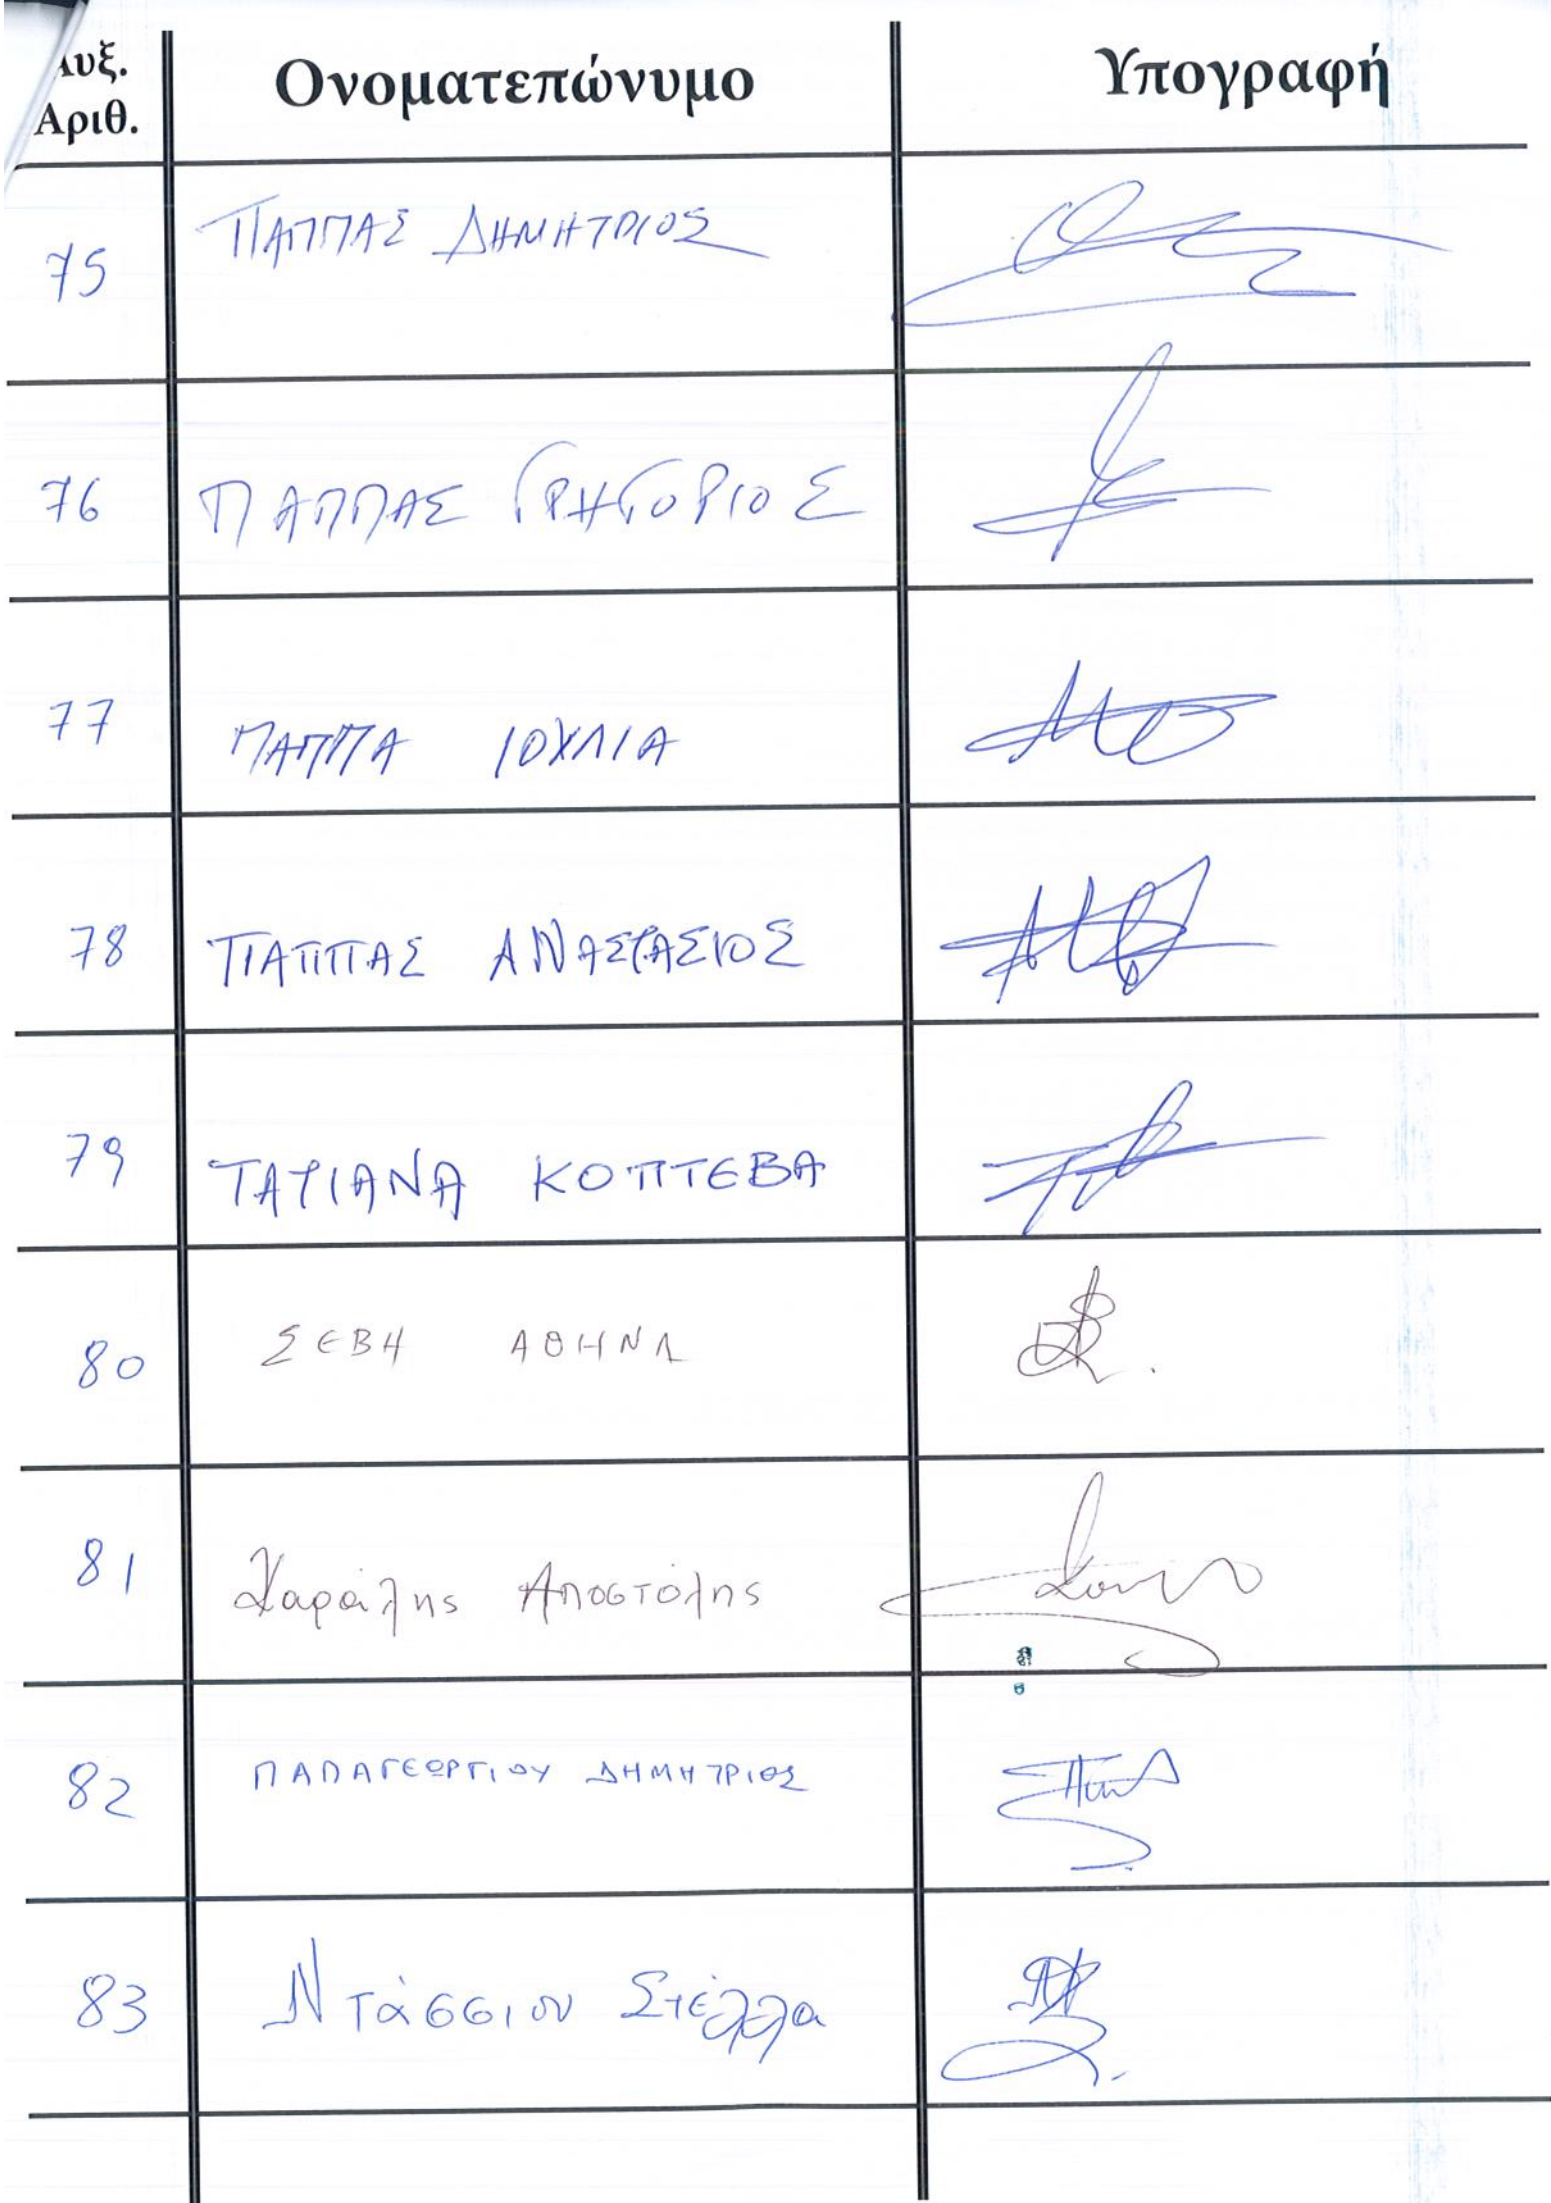 Αυξ. Ονοματεπώνυμο Υπογραφή
Αριθ.
75 ΠΑΠΠΑΣ ΔΗΜΗΤΡΙΟΣ
76 ΠΑΠΠΑΣ ΓΡΗΓΟΡΙΟΣ
77 ΠΑΠΠΑ ΙΟΥΛΙΑ
78 ΠΑΠΠΑΣ ΑΝΑΣΤΑΣΙΟΣ
79 ΤΑΤΙΑΝΑ ΚΟΠΤΕΒΑ
80 ΣΕΒΗ ΑΘΗΝΑ
81 Χαράλης Αποστόλης
82 ΠΑΠΑΓΕΩΡΓΙΟΥ ΔΗΜΗΤΡΙΟΣ
83 Ντάσσιου Στέλλα